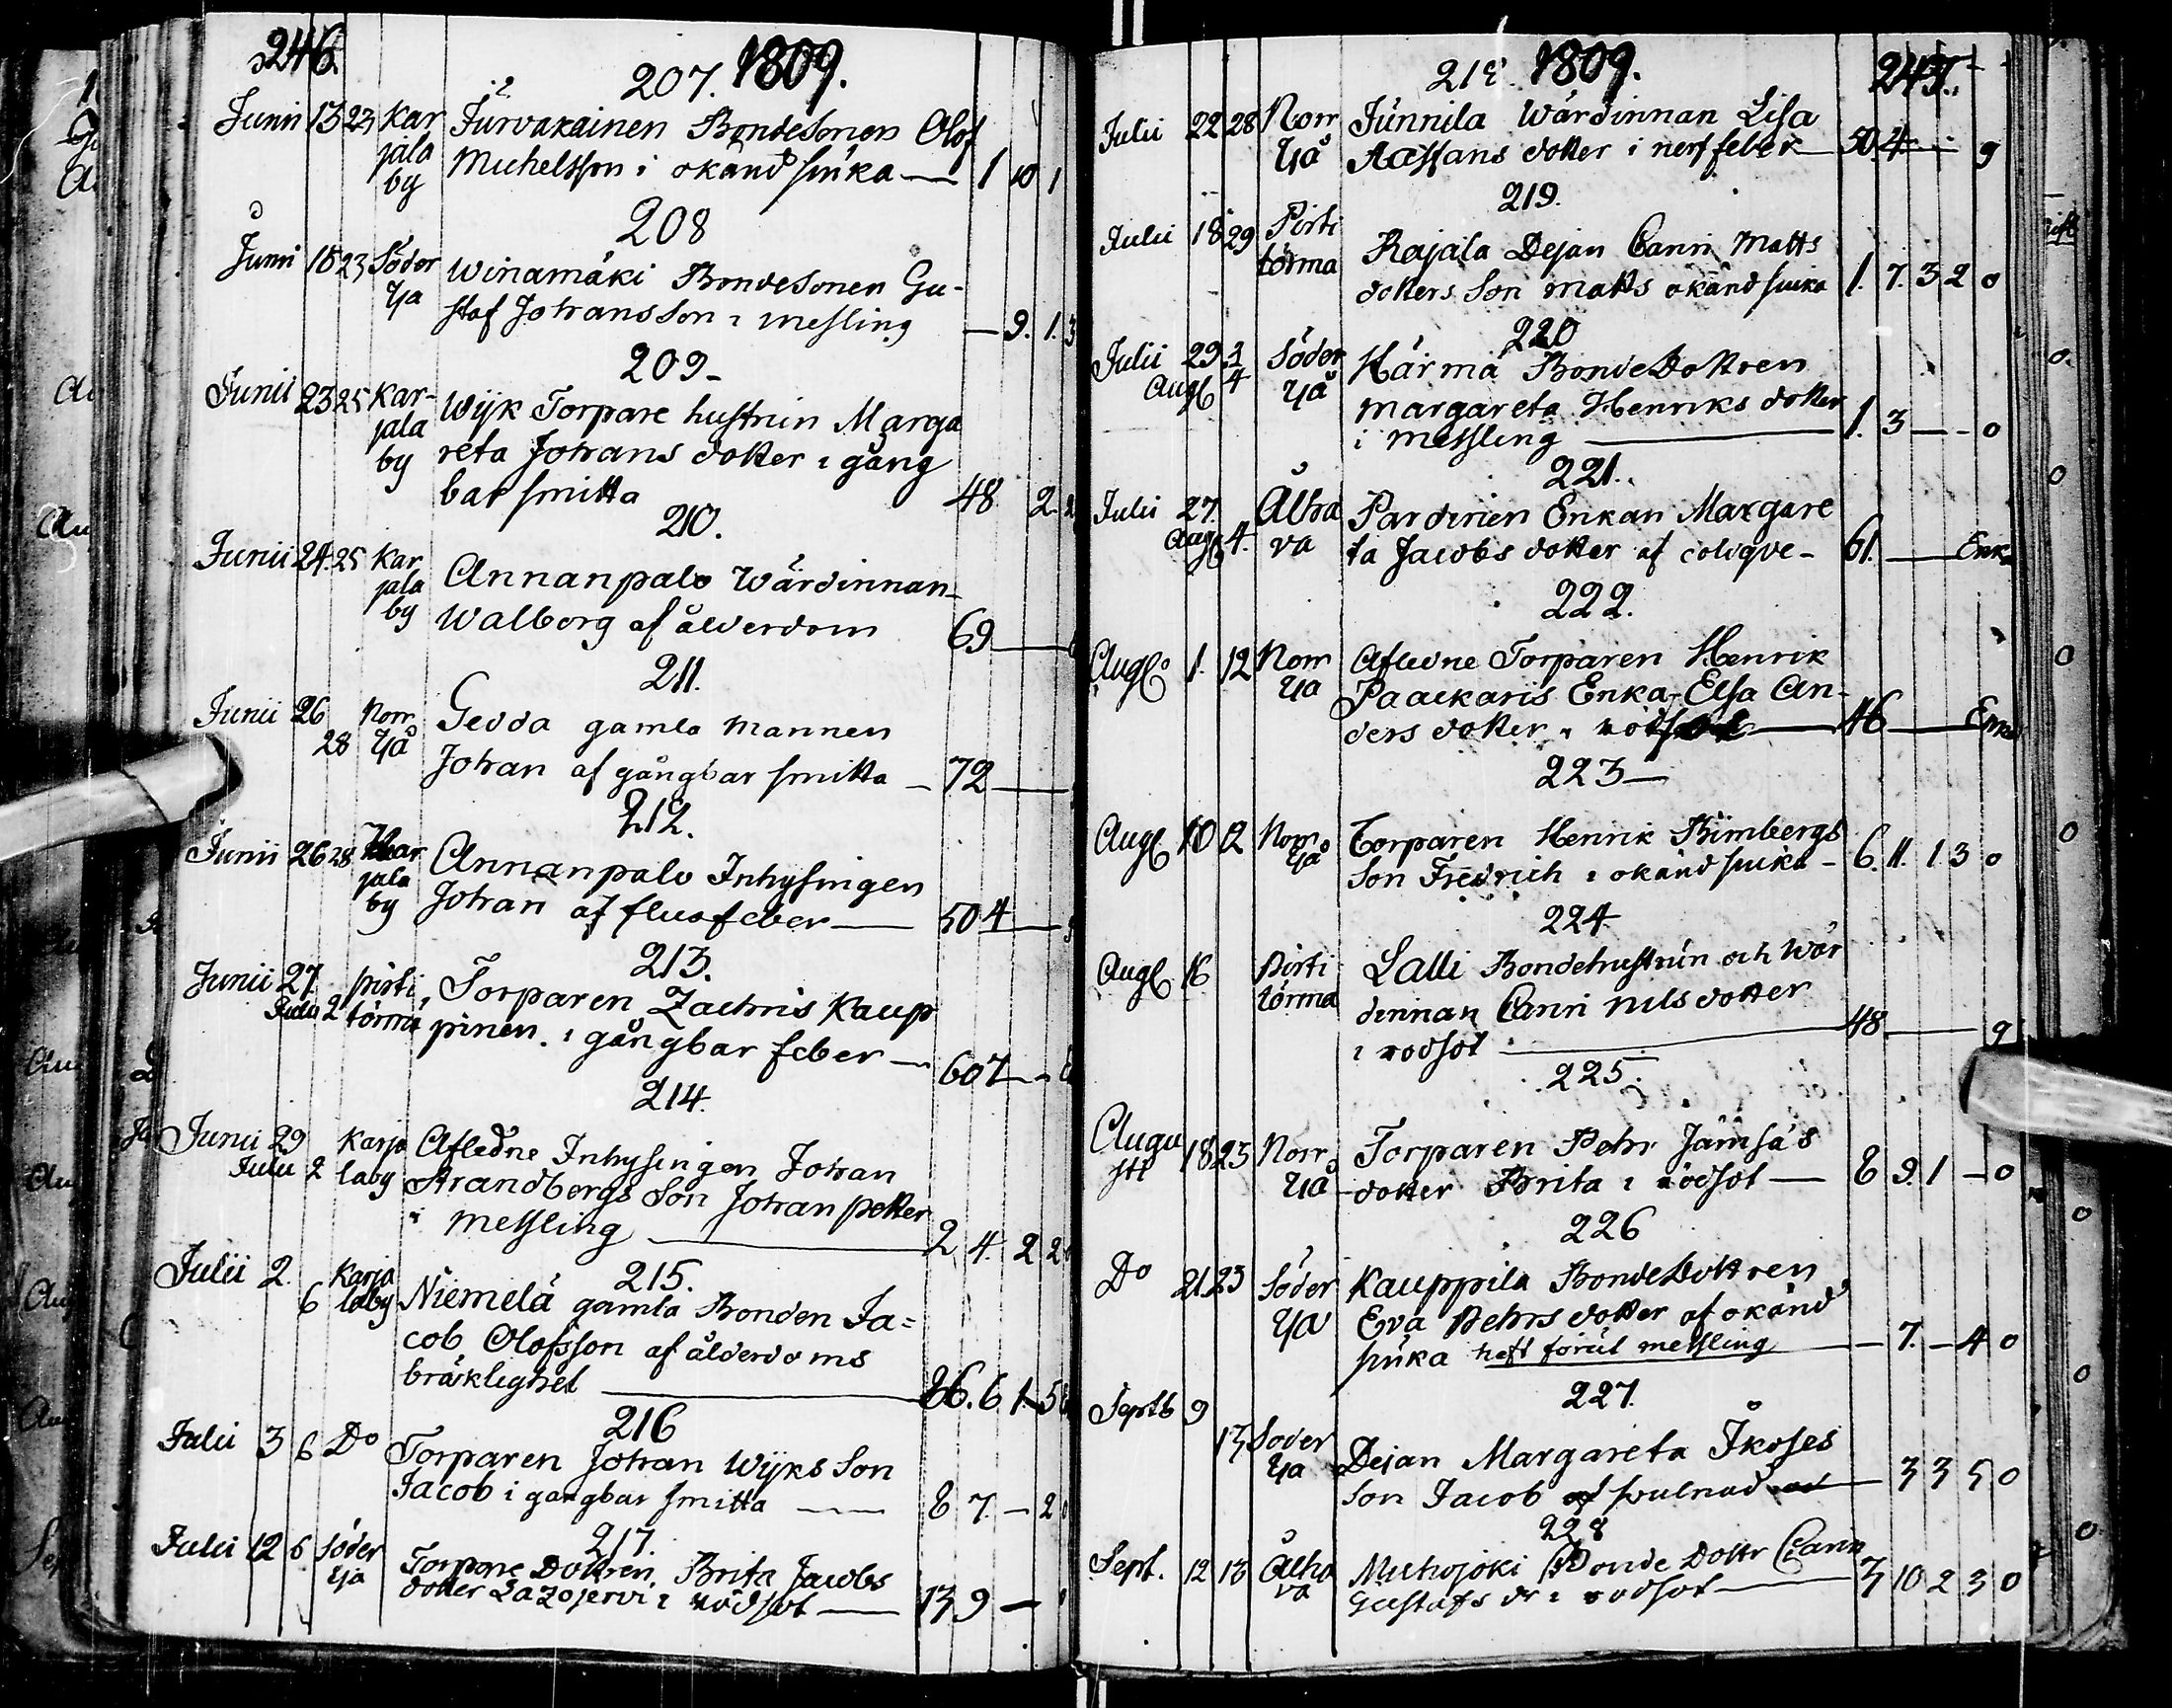 246.
207. 1809.
Junii 13 23 Kar Jurvakainen Bondesonen Olof
jala Michelsson i okänd siuka — 1 10 1
by
208
Junii 18 23 Söder Winamäki Bondesonen Gu-
Yja staf Johansson i messling — 9. 1. 3
209-
Junii 23 25 Kar- Wijk Torpare hustrun Marga
jala reta Johans dotter i gång
by bar smitta 48 2
210.
Junii 24. 25 Kar Annanpalo Wärdinnan
jala Walborg af ålderdom 69 —
by
211.
Junii 26 Norr Gedda gamla mannen
28 Yjå Johan af gångbar smitta — 72 —
212.
Junii 26 28 Kar Annanpalo Inhysingen
jala Johan af flusfeber — 50 4 —
by
213.
Junii 27. Pirti Torparen Zachris Kaup
Julii 2 törmä pinen. i gångbar feber — 60 7 — -
214.
Junii 29 Karja Afledne Inhysingen Johan
Julii 2 laby Strandbergs Son Johan petter
i messling — 2 4. 2 2
215.
Julii 2. Karja Niemelä gamla Bonden Ja=
6 laby cob Olofsson af ålderdoms
bräcklighet — 86. 6 1 5
216
Julii 3 6 Do Torparen Johan Wijks Son
Jacob i gangbar smitta — 8 7. — 2
217.
Julii 12 6 Söder Torpare Dottren Brita Jacobs
Yja dotter Lazojervi i rödsot — 13 9 —
218. 1809. 247.
Julii 22 28 Norr Junnila Wärdinnan Lisa
Yjå Mattans dotter i nerffeber — 50 4 — 9
219.
Julii 18 29 Pirti Rajala Dejan Carin Matts
törma dotters Son Matts okänd siuka 1. 7. 3 2 0
220
Julii 29 Söder Härmä Bonde Dottren
Aug 4 Yjå Margareta Henriks dotter
i messling — 1. 3 — - 0
221.
Julii 27. Ålha Pardinen Enkan Margare
Aug 4. va ta Jacobs dotter af colique — 61. — Enka
222.
Aug 1. 12 Norr Afledne Torparen Henrik
Yjå Paackaris Enka Elsa An-
ders dotter i rödsot — 46 — Enka
223 —
Aug 10 12 Norr Torparen Henrik Bimbergs
Yjå Son Fredrich i okänd siuka — 6. 11. 1 3 0
224
Aug 16 Pirti Lalli Bondehustrun och Wär
törma dinnan Carin Nils dotter
i rodsot — 48 — 9
225.
Augu 18 23 Norr Torparen Pehr Jämsä's
sti Yjå dotter Brita i rödsot — 8 9. 1 — 0
226
Do 21 23 Söder Kauppila Bonde Dottren
Yja Eva Pehrs dotter af okänd
siuka haft förut messling — 7. — 4 0
227.
Septb 9
13 Söder Dejan Margareta Ikoses
Yja Son Jacob af svulnad — 3 3 5 0
228
Sept. 12 13 Ålha Muhojoki Bonde Dottr Carin
va Gustafs dr i rodsot — 3 10 2 3 0